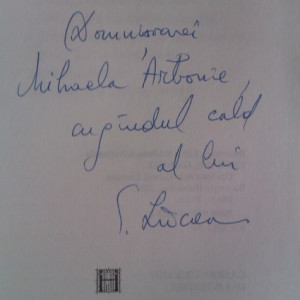 Domnișoarei
Mihaela Arbonie,
cu gîndul cald
al lui